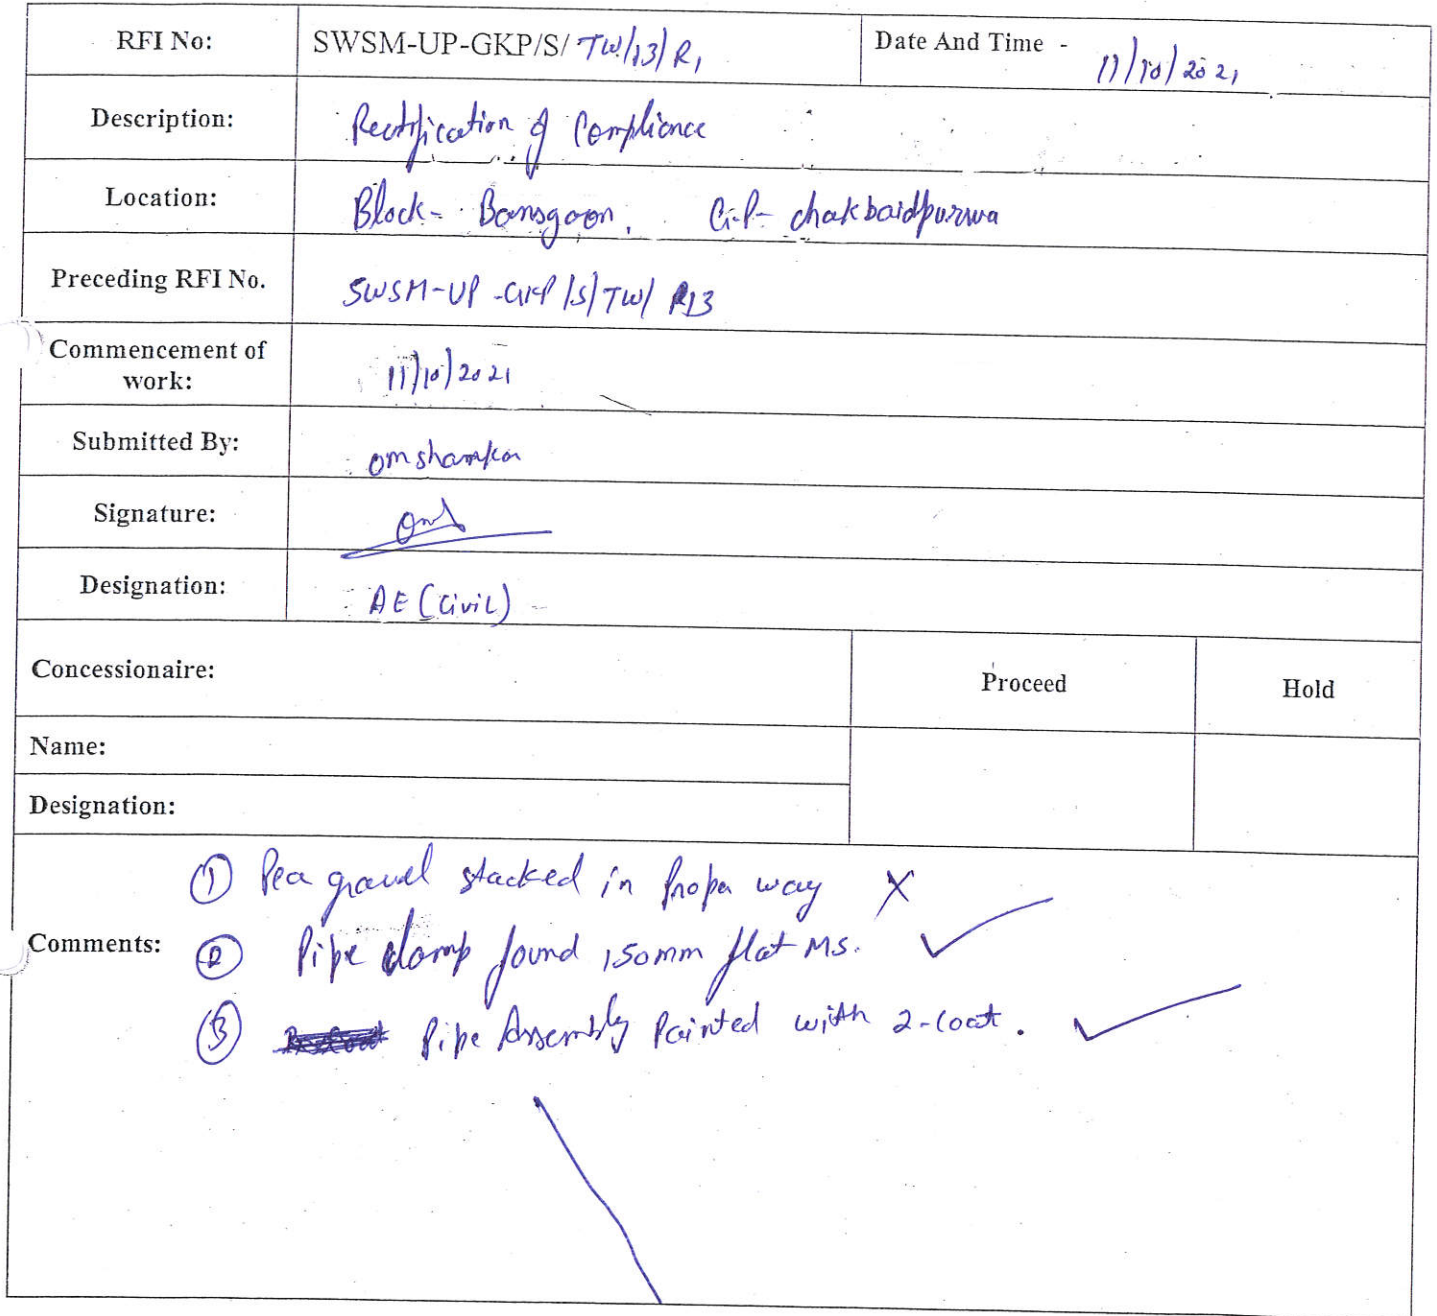 RFI No: SWSM-UP-GKP/S/ TW/13/ R1 Date And Time - 11/10/2021
Description: Rectification of Compliance
Location: Block- Bansgaon, G.P- chakbaidpurwa
Preceding RFI No. SWSM-UP-GKP/S/TW/ R13
Commencement of
work: 11/10/2021
Submitted By: omshankar
Signature: Om
Designation: AE (Civil)
Concessionaire: Proceed Hold
Name:
Designation:
① Pea gravel stacked in Proper way ✗
Comments: ② Pipe clamp found 150mm flat MS. ✓
③ Pipe Assembly Painted with 2-coat. ✓